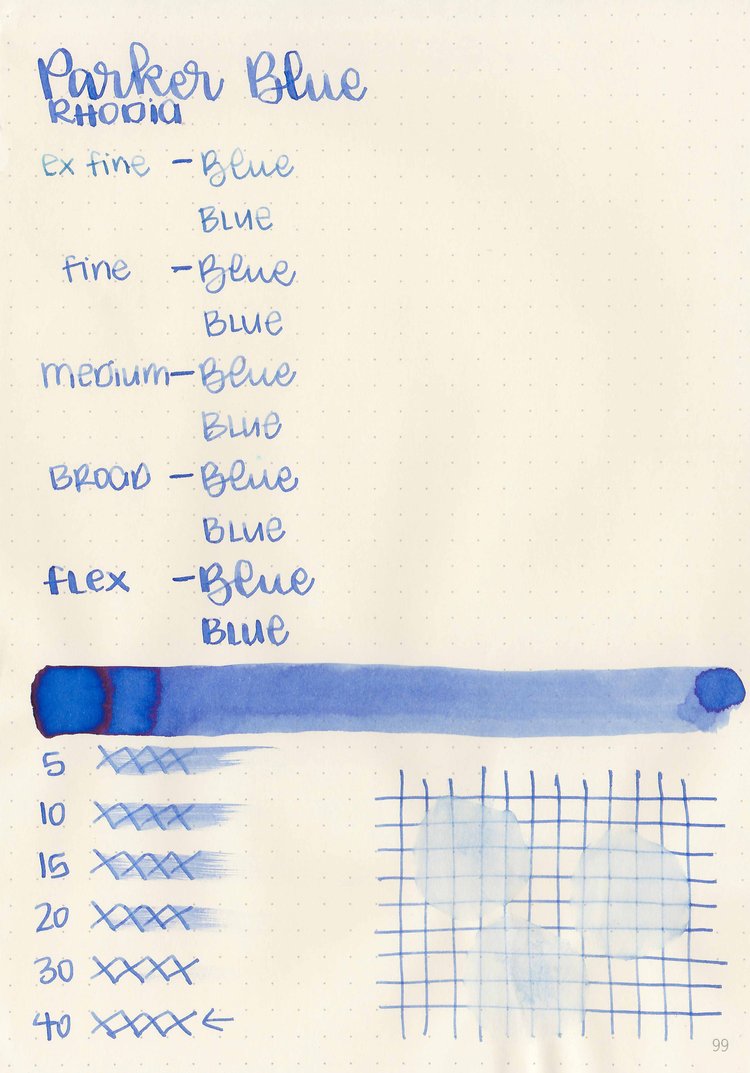 Parker Blue
RHODIA
ex fine - Blue
BLUE
fine - Blue
BLUE
medium - Blue
BLUE
BROAD - Blue
BLUE
flex - Blue
BLUE
5 XXXX
10 XXXX
15 XXXX
20 XXXX
30 XXXX
40 XXXX ←
99